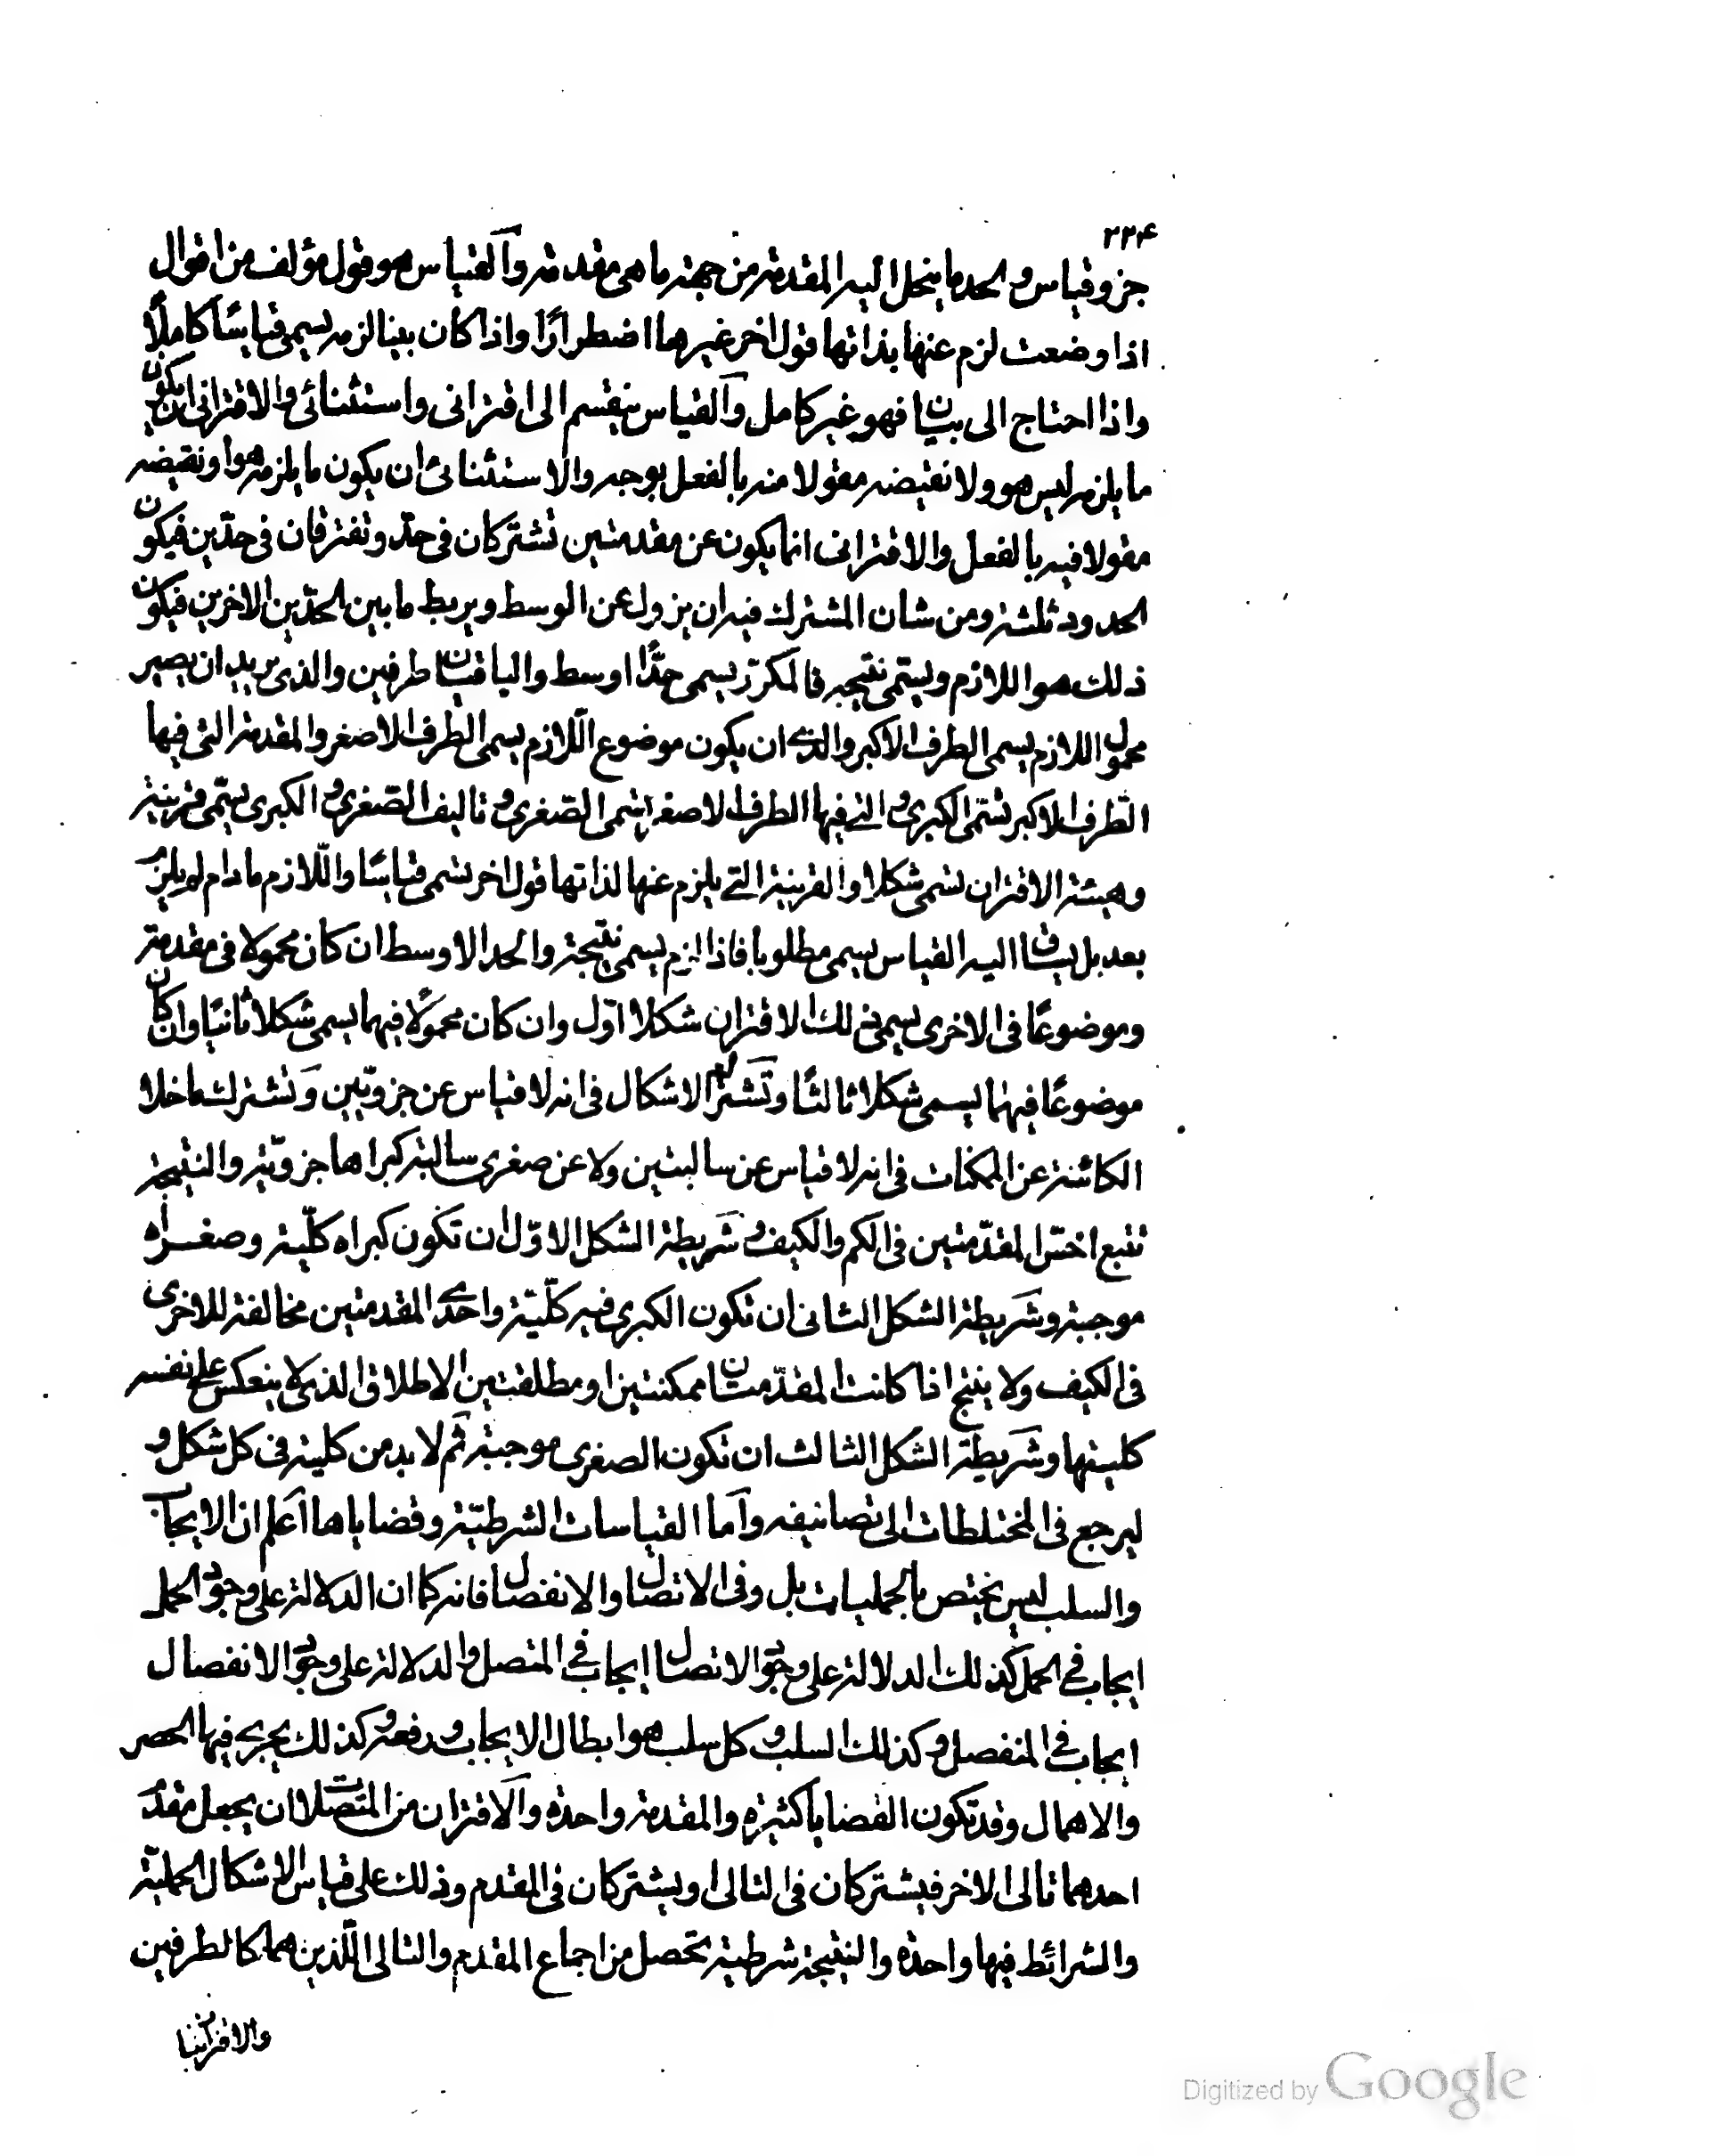 ٢٣٤
جزو قياس والحد ما ينحل اليه المقدمة من جهة ما هى مقدمة والقياس هو قول مؤلف من اقوال
اذا وضعت لزم عنها بذاتها قول اخر غيرها اضطرارًا واذا كان بينا لزمه يسمى قياسًا كاملًا
واذا احتاج الى بيان فهو غير كامل والقياس ينقسم الى اقترانى واستثنائى والاقترانى ان يكون
ما يلزمه ليس هو ولا نقيضه مقولا منه بالفعل بوجه والاستثنائى ان يكون ما يلزمه هو او نقيضه
مقولا فيه بالفعل والاقترانى انما يكون عن مقدمتين تشتركان فى حدّ وتفترقان فى حدّين فيكون
الحدود ثلثة ومن شان المشترك فيه ان يزول عن الوسط ويربط ما بين الحدّين الاخرين فيكون
ذلك هو اللازم ويسمّى نتيجه فالمكرّر يسمى حدًّا اوسط والباقيان طرفين والذى يريد ان يصير
محمول اللازم يسمى الطرف الاكبر والذى ان يكون موضوع اللّازم يسمى الطرف الاصغر والمقدمة التى فيها
الطّرف الاكبر تسمّى الكبرى والتى فيها الطرف الاصغر تسمى الصّغرى وتاليف الصّغرى والكبرى يسمّى قرينة
وهيئة الاقتران تسمى شكلا والقرينة التى يلزم عنها لذاتها قول اخر تسمى قياسًا واللّازم ما دام لم يلزم
بعد بل يساق اليه القياس يسمى مطلوبا فاذا لزم يسمى نتيجة والحد الاوسط ان كان محمولا فى مقدمة
وموضوعًا فى الاخرى يسمى ذلك الاقتران شكلا اوّل وان كان محمولًا فيهما يسمى شكلا ثانيًا وان كان
موضوعًا فيهما يسمى شكلا ثالثًا وتشترك الاشكال فى انه لا قياس عن جزويّين وتشترك ما خلا
الكائنة عن الممكنات فى انه لا قياس عن سالبتين ولا عن صغرى سالبة كبراها جزويّة والنتيجة
تتبع اخسّ المقدّمتين فى الكم والكيف وشريطة الشكل الاوّل ان تكون كبراه كلّية وصغراه
موجبة وشريطة الشكل الثانى ان تكون الكبرى فيه كلّيّة واحدى المقدمتين مخالفة للاخرى
فى الكيف ولا ينتج اذا كانت المقدّمتان ممكنتين او مطلقتين الاطلاق الذى لا ينعكس على نفسه
كليتها وشريطة الشكل الثالث ان تكون الصغرى موجبة ثم لا بد من كلية فى كل شكل و
ليرجع فى المختلطات الى تصانيفه واما القياسات الشرطيّة وقضاياها اعلم ان الايجاب
والسلب ليس يختص بالحمليات بل وفى الاتصال والانفصال فانه كما ان الدلالة على وجود الحمل
ايجاب فى الحمل كذلك الدلالة على وجود الاتصال ايجاب فى المتصل والدلالة على وجود الانفصال
ايجاب فى المنفصل وكذلك السلب وكل سلب هو ابطال الايجاب ورفعه وكذلك يجرى فيها الحصر
والاهمال وقد تكون القضايا كثيرة والمقدمة واحدة والاقتران من المتصلات ان يجعل مقدم
احدهما تالى الاخر فيشتركان فى التالى او يشتركان فى المقدم وذلك على قياس الاشكال الحملية
والشرائط فيها واحدة والنتيجة شرطية تحصل من اجماع المقدم والتالى اللّذين هما كالطرفين
والاقترانيات
Digitized by Google